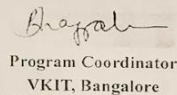 Program Coordinator
VKIT, Bangalore